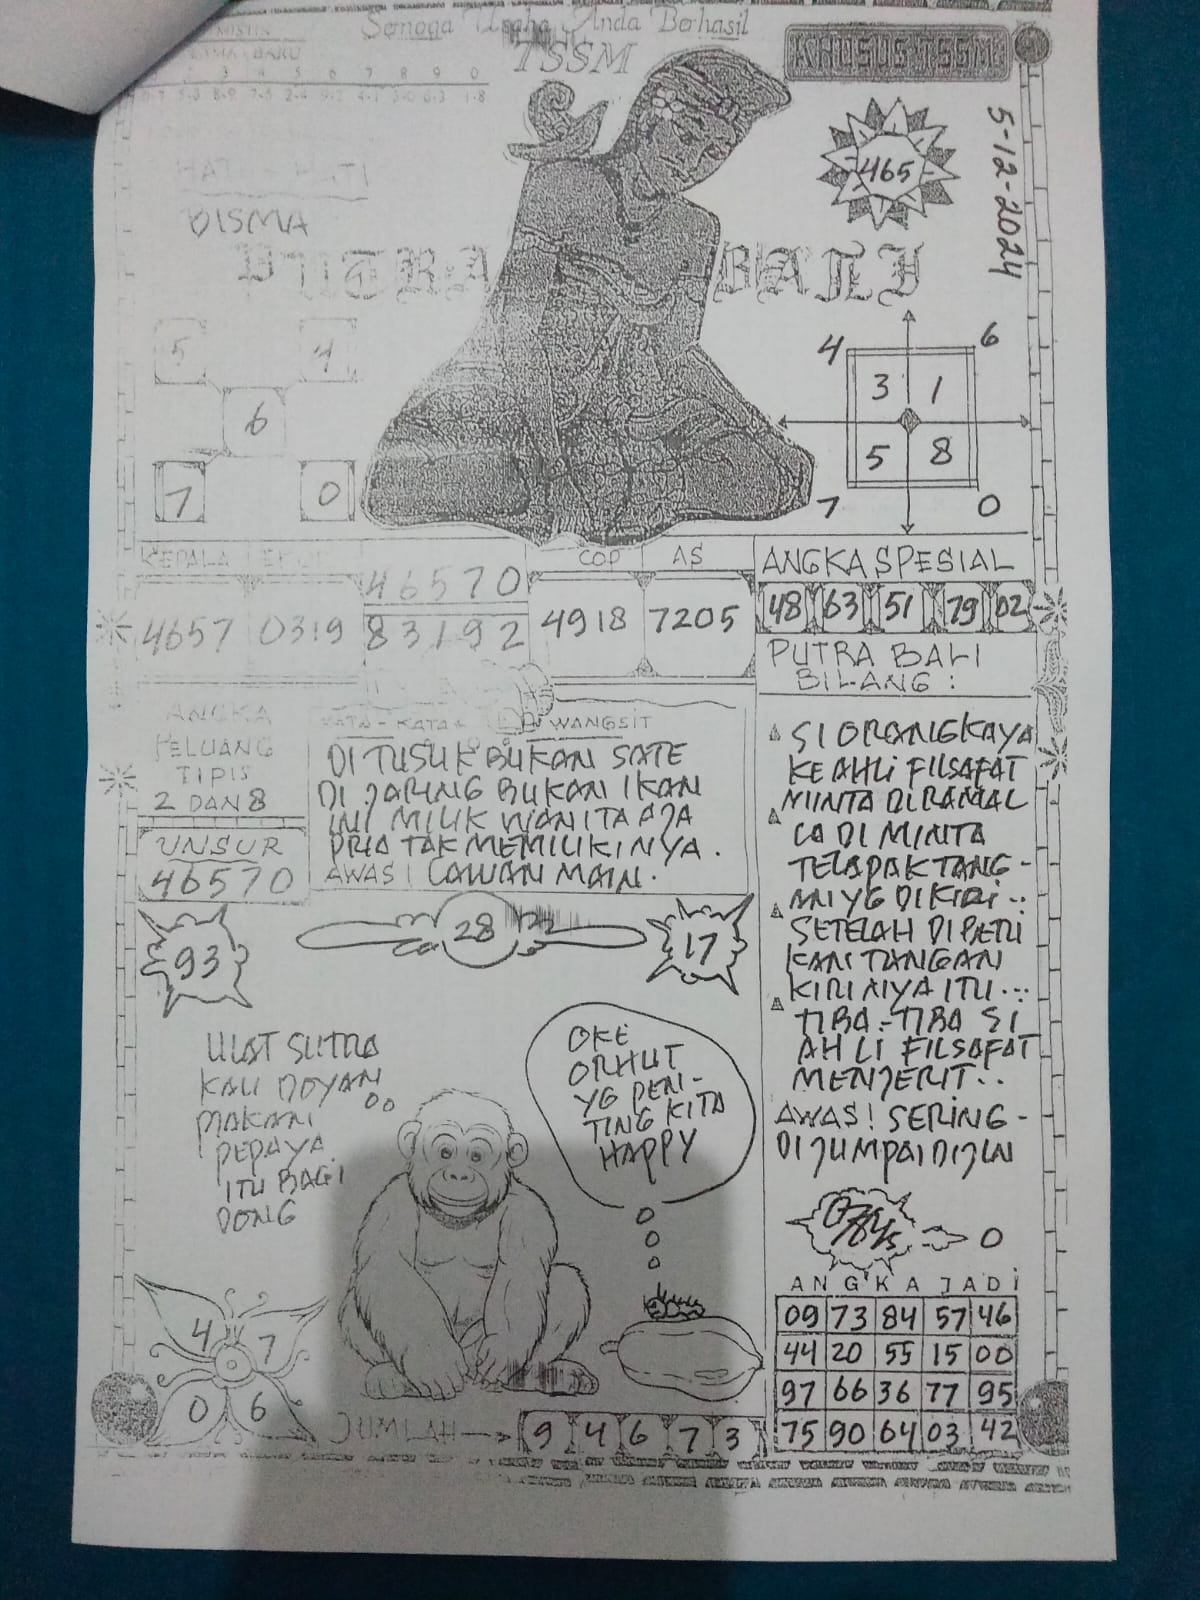 Semoga Usaha Anda Berhasil
TSSM
KHUSUS TSSM
MISTIK
LAMA - BARU
3 4 5 6 7 8 9 0
5-12-2024
465
PUTRA BALI
5 4
6
7 0
4 6
3 1
5 8
7 0
KEPALA
COP AS
4657 0319
46570
83192
4918 7205
ANGKA SPESIAL
48 63 51 79 02
PUTRA BALI
BILANG :
ANGKA
PELUANG
TIPIS
2 DAN 8
UNSUR
46570
KATA - KATA WANGSIT
DI TUSUK BUKAN SATE
DI JARING BUKAN IKAN
INI MILIK WANITA AJA
PRIA TAK MEMILIKINYA.
AWAS! LAWAN MAIN.
SI ORANG KAYA
KE AHLI FILSAFAT
MINTA DIRAMAL
LA DI MINTA
TELAPAK TANG-
AN YG DI KIRI..
SETELAH DI
KAN TANGAN
KIRI NYA ITU...
TIBA-TIBA SI
AHLI FILSAFAT
MENJERIT..
AWAS! SERING-
DIJUMPAI DIJLN
93
28
17
ULAT SUTRA
KAU DOYAN
MAKAN
PEPAYA
ITU BAGI
DONG
OKE
ORHUT
YG PEN-
TING KITA
HAPPY
0
ANGKA JADI
09 73 84 57 46
44 20 55 15 00
97 66 36 77 95
75 90 64 03 42
4 7
0 6
JUMLAH 9 4 6 7 3